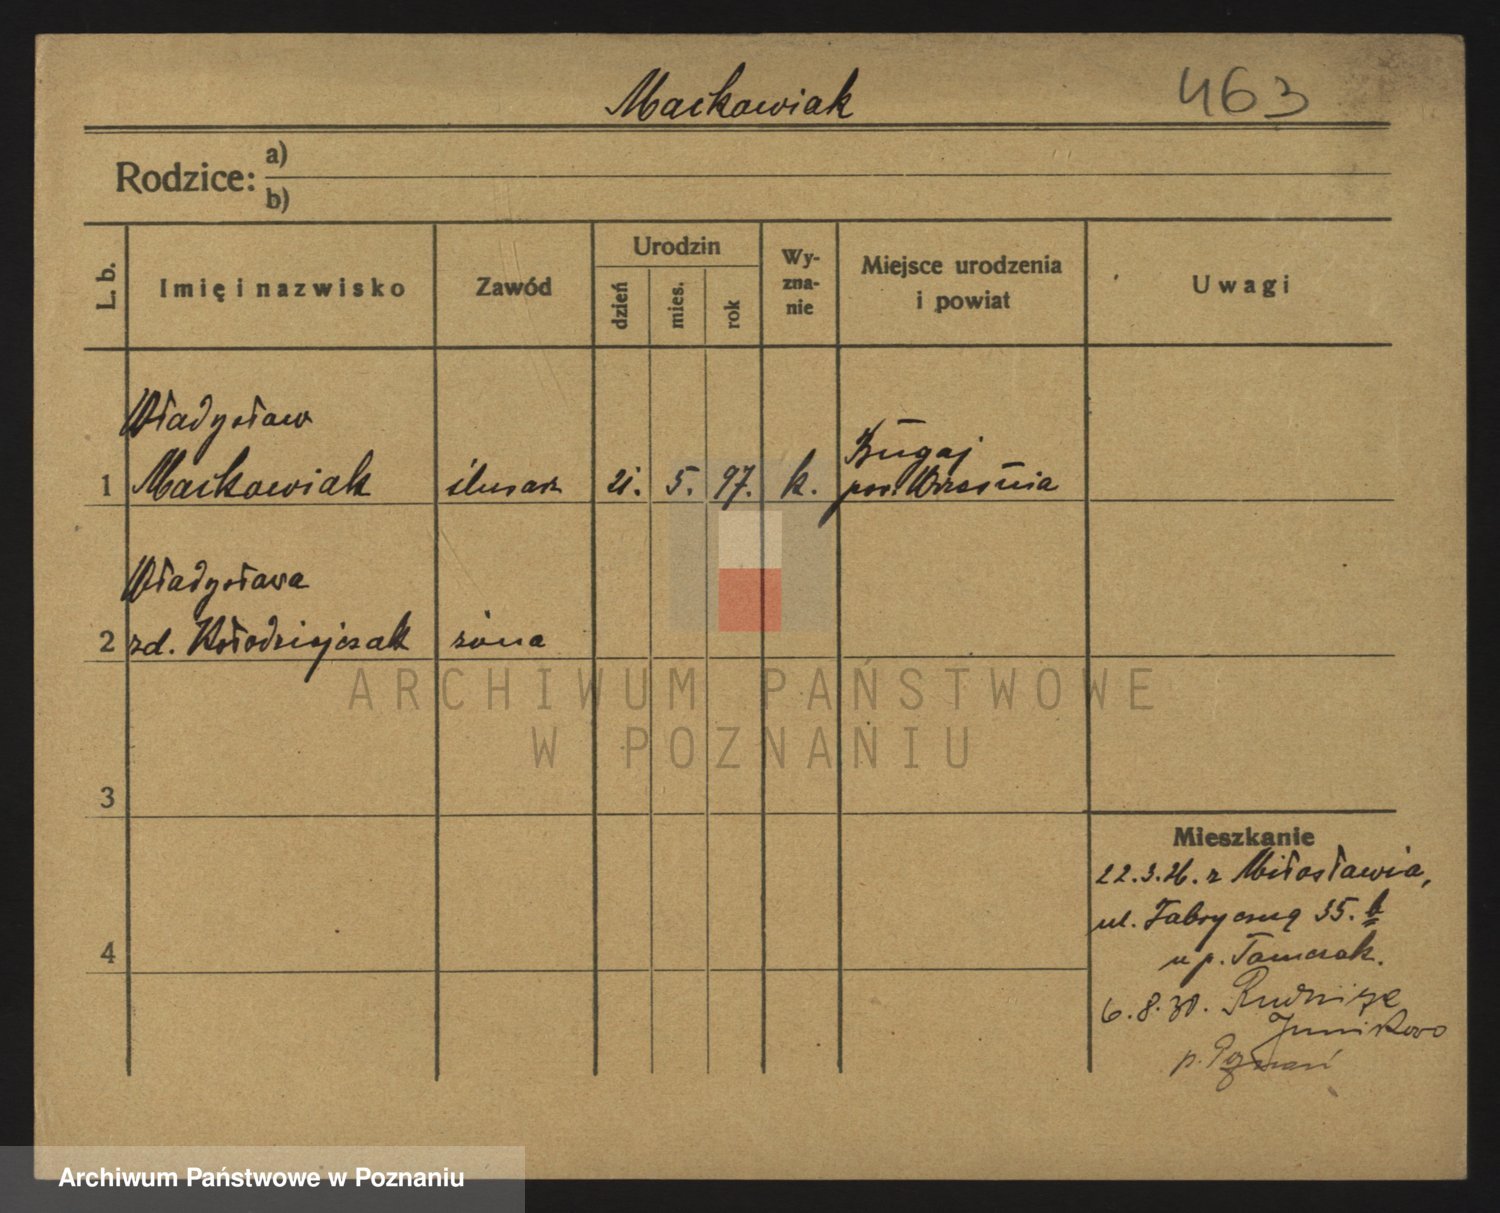 Maćkowiak 463
Rodzice: a)
b)
L. b. Imię i nazwisko Zawód Urodzin dzień mies. rok Wy-zna-nie Miejsce urodzenia i powiat Uwagi
Władysław
1 Maćkowiak ślusarz 21. 5. 97. k. Bugaj
pow. Września
Władysława
2 zd. Kołodziejczak żona
3
4
Mieszkanie
22.3.26. z Miłosławia,
ul. Fabryczną 35. b
u p. Tomczak.
6.8.30. Rudnicze
Junikowo
p. Poznań
ARCHIWUM PAŃSTWOWE
W POZNANIU
Archiwum Państwowe w Poznaniu